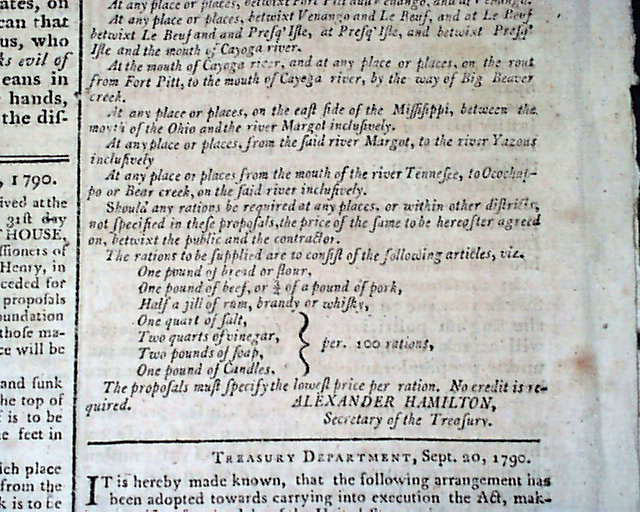 ates, on
can that
us, who
ks evil of
eans in
hands,
the dif-
, 1790.
ived at the
31st day
HOUSE,
ssioners of
Henry, in
ceeded for
proposals
oundation
those ma-
ce will be
and sunk
he top of
is to be
e feet in
ich place
from the
k is to be
At any place or places, betwixt Fort Pitt and Venango, and at Venango.
At any place or places, betwixt Venango and Le Beuf, and at Le Beuf
betwixt Le Beuf and and Presq' Isle, at Presq' Isle, and betwixt Presq'
Isle and the mouth of Cayoga river.
At the mouth of Cayoga river, and at any place or places, on the rout
from Fort Pitt, to the mouth of Cayoga river, by the way of Big Beaver
creek.
At any place or places, on the east side of the Missisippi, between the
mouth of the Ohio and the river Margot inclusively.
At any place or places, from the said river Margot, to the river Yazous
inclusively
At any place or places from the mouth of the river Tennesee, to Ocochap-
po or Bear creek, on the said river inclusively.
Should any rations be required at any places, or within other districts,
not specified in these proposals, the price of the same to be hereafter agreed
on, betwixt the public and the contractor.
The rations to be supplied are to consist of the following articles, viz.
One pound of bread or flour,
One pound of beef, or ¾ of a pound of pork,
Half a jill of rum, brandy or whisky,
One quart of salt,
Two quarts of vinegar,
Two pounds of soap,
One pound of Candles.
per. 100 rations,
The proposals must specify the lowest price per ration. No credit is re-
quired. ALEXANDER HAMILTON,
Secretary of the Treasury.
TREASURY DEPARTMENT, Sept. 20, 1790.
IT is hereby made known, that the following arrangement has
been adopted towards carrying into execution the Act, mak-